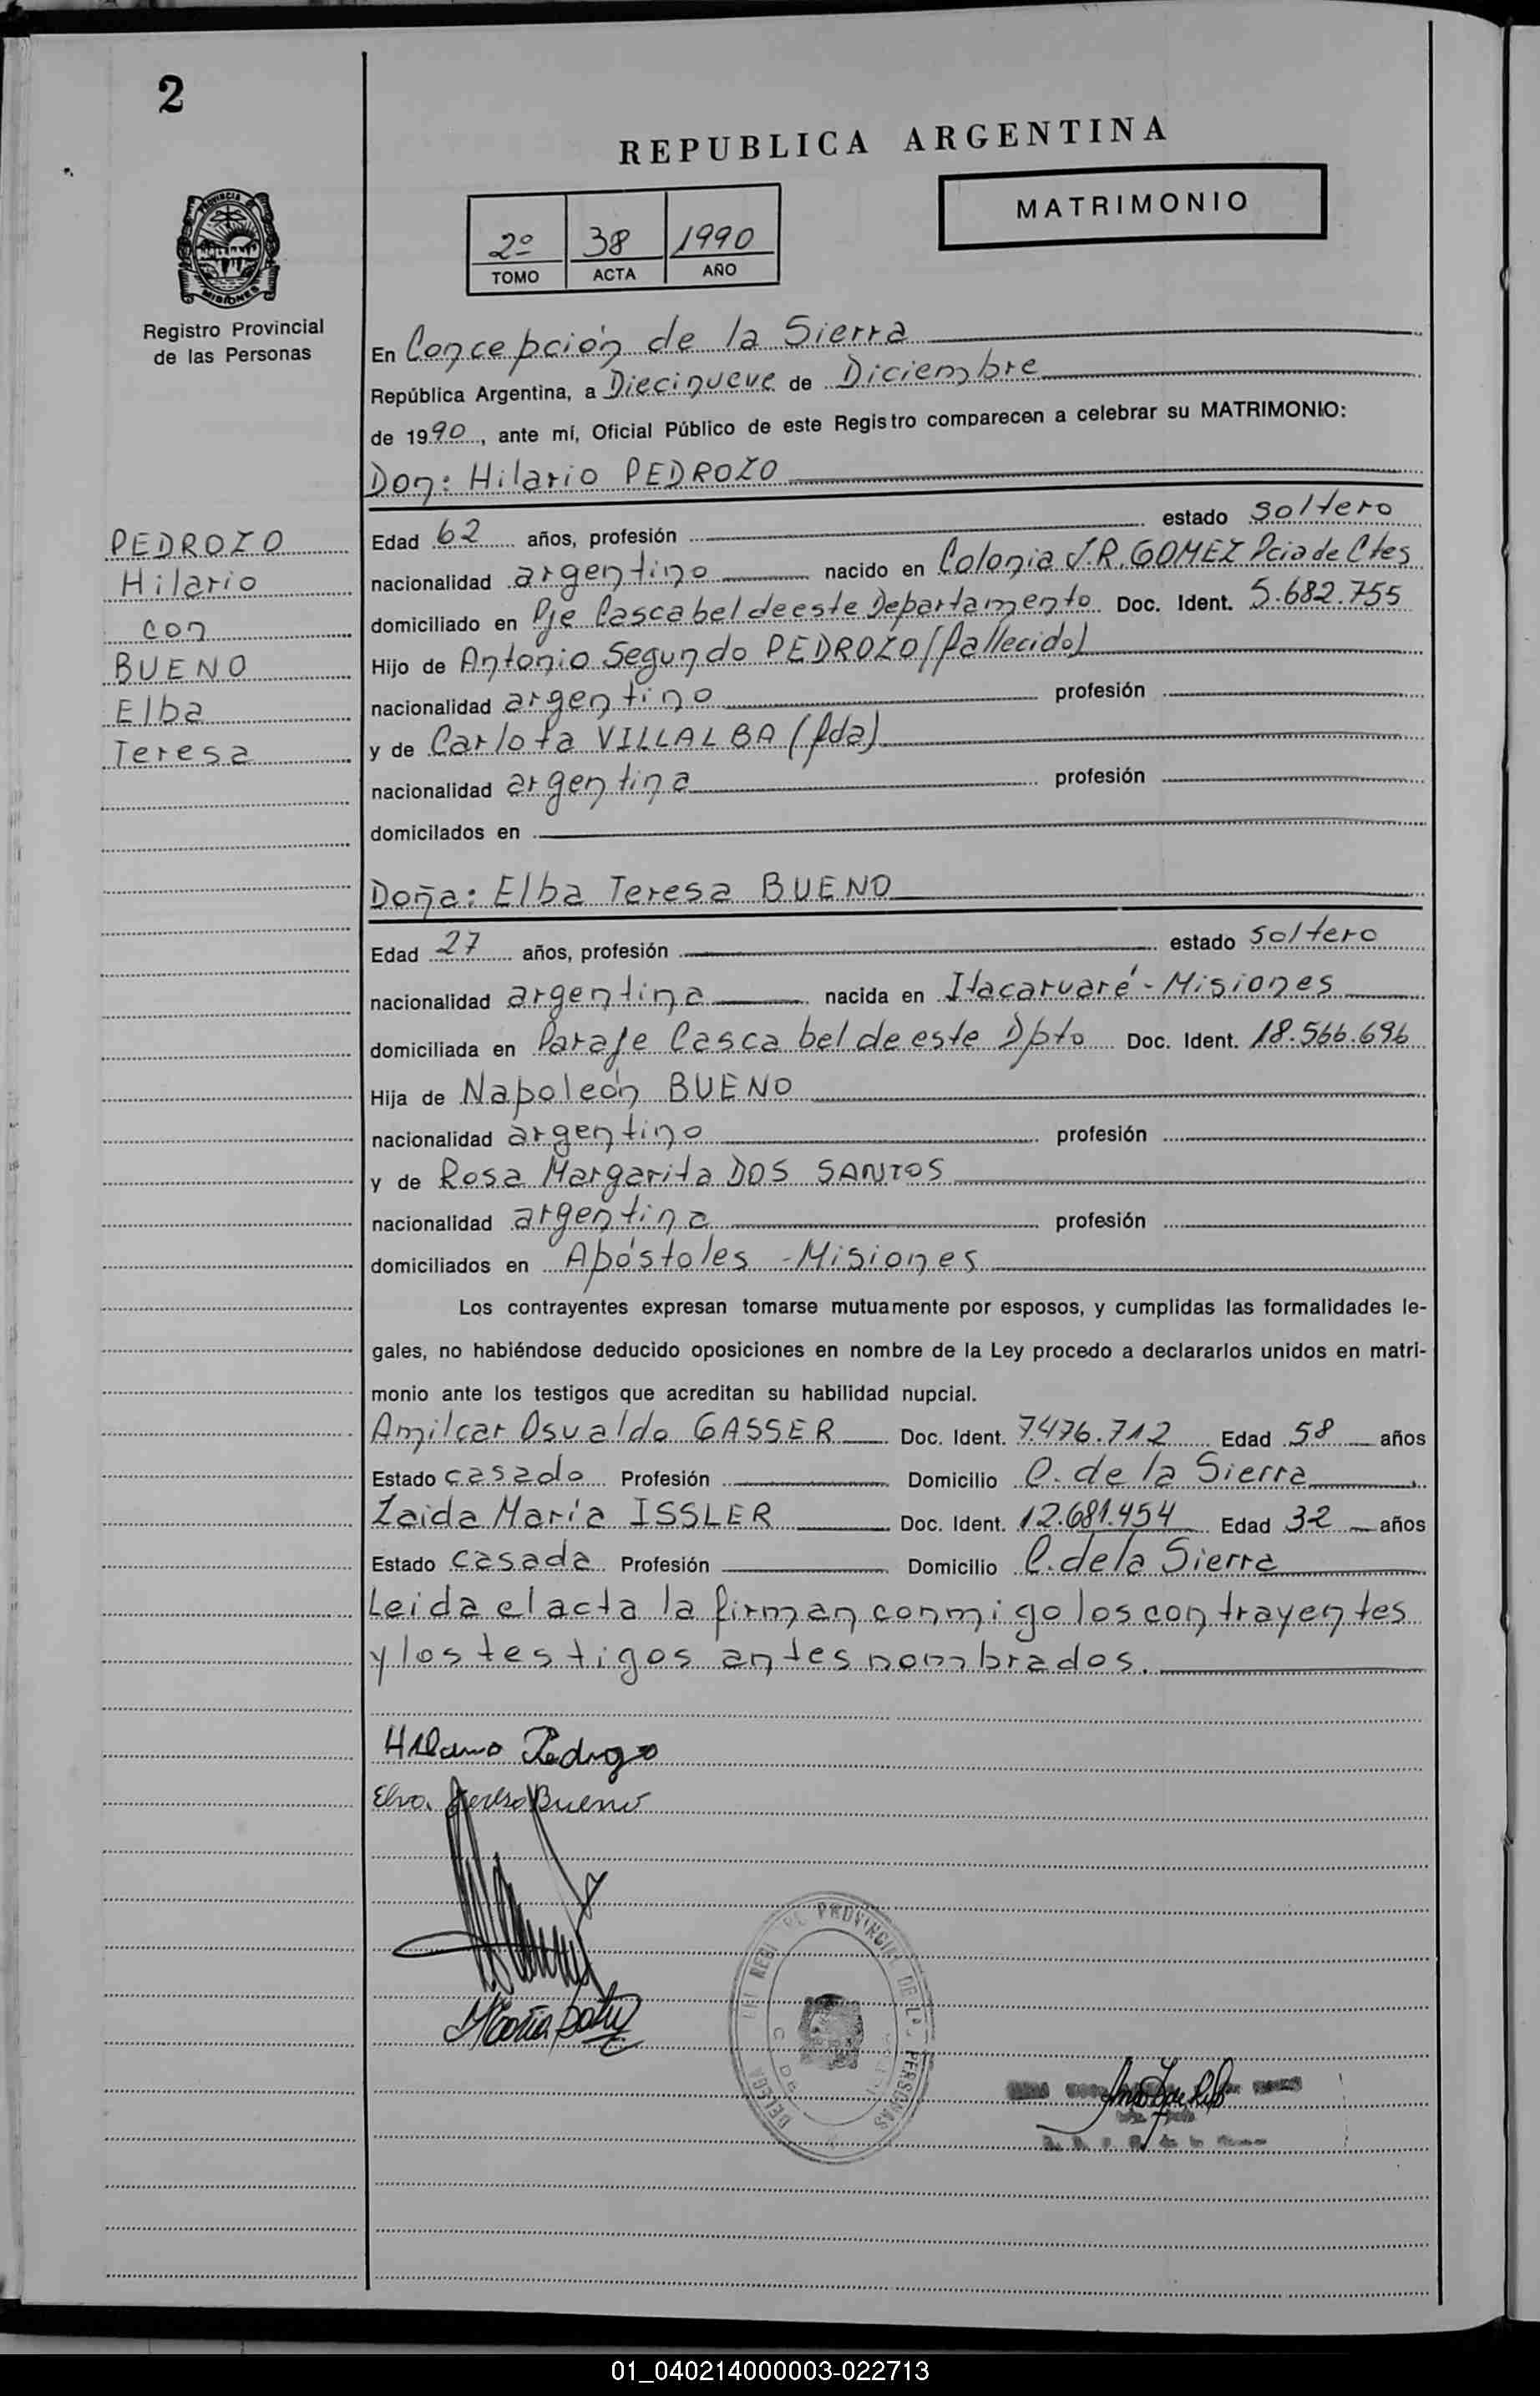 2
REPUBLICA ARGENTINA
MATRIMONIO
2º 38 1990
TOMO ACTA AÑO
PROVINCIA
MISIONES
Registro Provincial
de las Personas
En Concepción de la Sierra
República Argentina, a Diecinueve de Diciembre
de 1990, ante mí, Oficial Público de este Registro comparecen a celebrar su MATRIMONIO:
Don: Hilario PEDROZO
PEDROZO
Hilario
con
BUENO
Elba
Teresa
Edad 62 años, profesión estado soltero
nacionalidad argentino nacido en Colonia J.R. GOMEZ Pcia de Ctes
domiciliado en Pje Cascabel de este Departamento Doc. Ident. 5.682.755
Hijo de Antonio Segundo PEDROZO (fallecido)
nacionalidad argentino profesión
y de Carlota VILLALBA (fda)
nacionalidad argentina profesión
domicilados en
Doña: Elba Teresa BUENO
Edad 27 años, profesión estado soltero
nacionalidad argentina nacida en Itacaruaré - Misiones
domiciliada en Paraje Cascabel de este Dpto Doc. Ident. 18.566.696
Hija de Napoleón BUENO
nacionalidad argentino profesión
y de Rosa Margarita DOS SANTOS
nacionalidad argentina profesión
domiciliados en Apóstoles - Misiones
Los contrayentes expresan tomarse mutuamente por esposos, y cumplidas las formalidades le-
gales, no habiéndose deducido oposiciones en nombre de la Ley procedo a declararlos unidos en matri-
monio ante los testigos que acreditan su habilidad nupcial.
Amilcar Osvaldo GASSER Doc. Ident. 7.476.712 Edad 58 años
Estado casado Profesión Domicilio C. de la Sierra
Zaida María ISSLER Doc. Ident. 12.681.454 Edad 32 años
Estado casada Profesión Domicilio C. de la Sierra
Leida el acta la firman conmigo los contrayentes
y los testigos antes nombrados.
Hilario Pedrozo
Elva Teresa Bueno
PROVINCIAL DE LAS PERSONAS
01_040214000003-022713